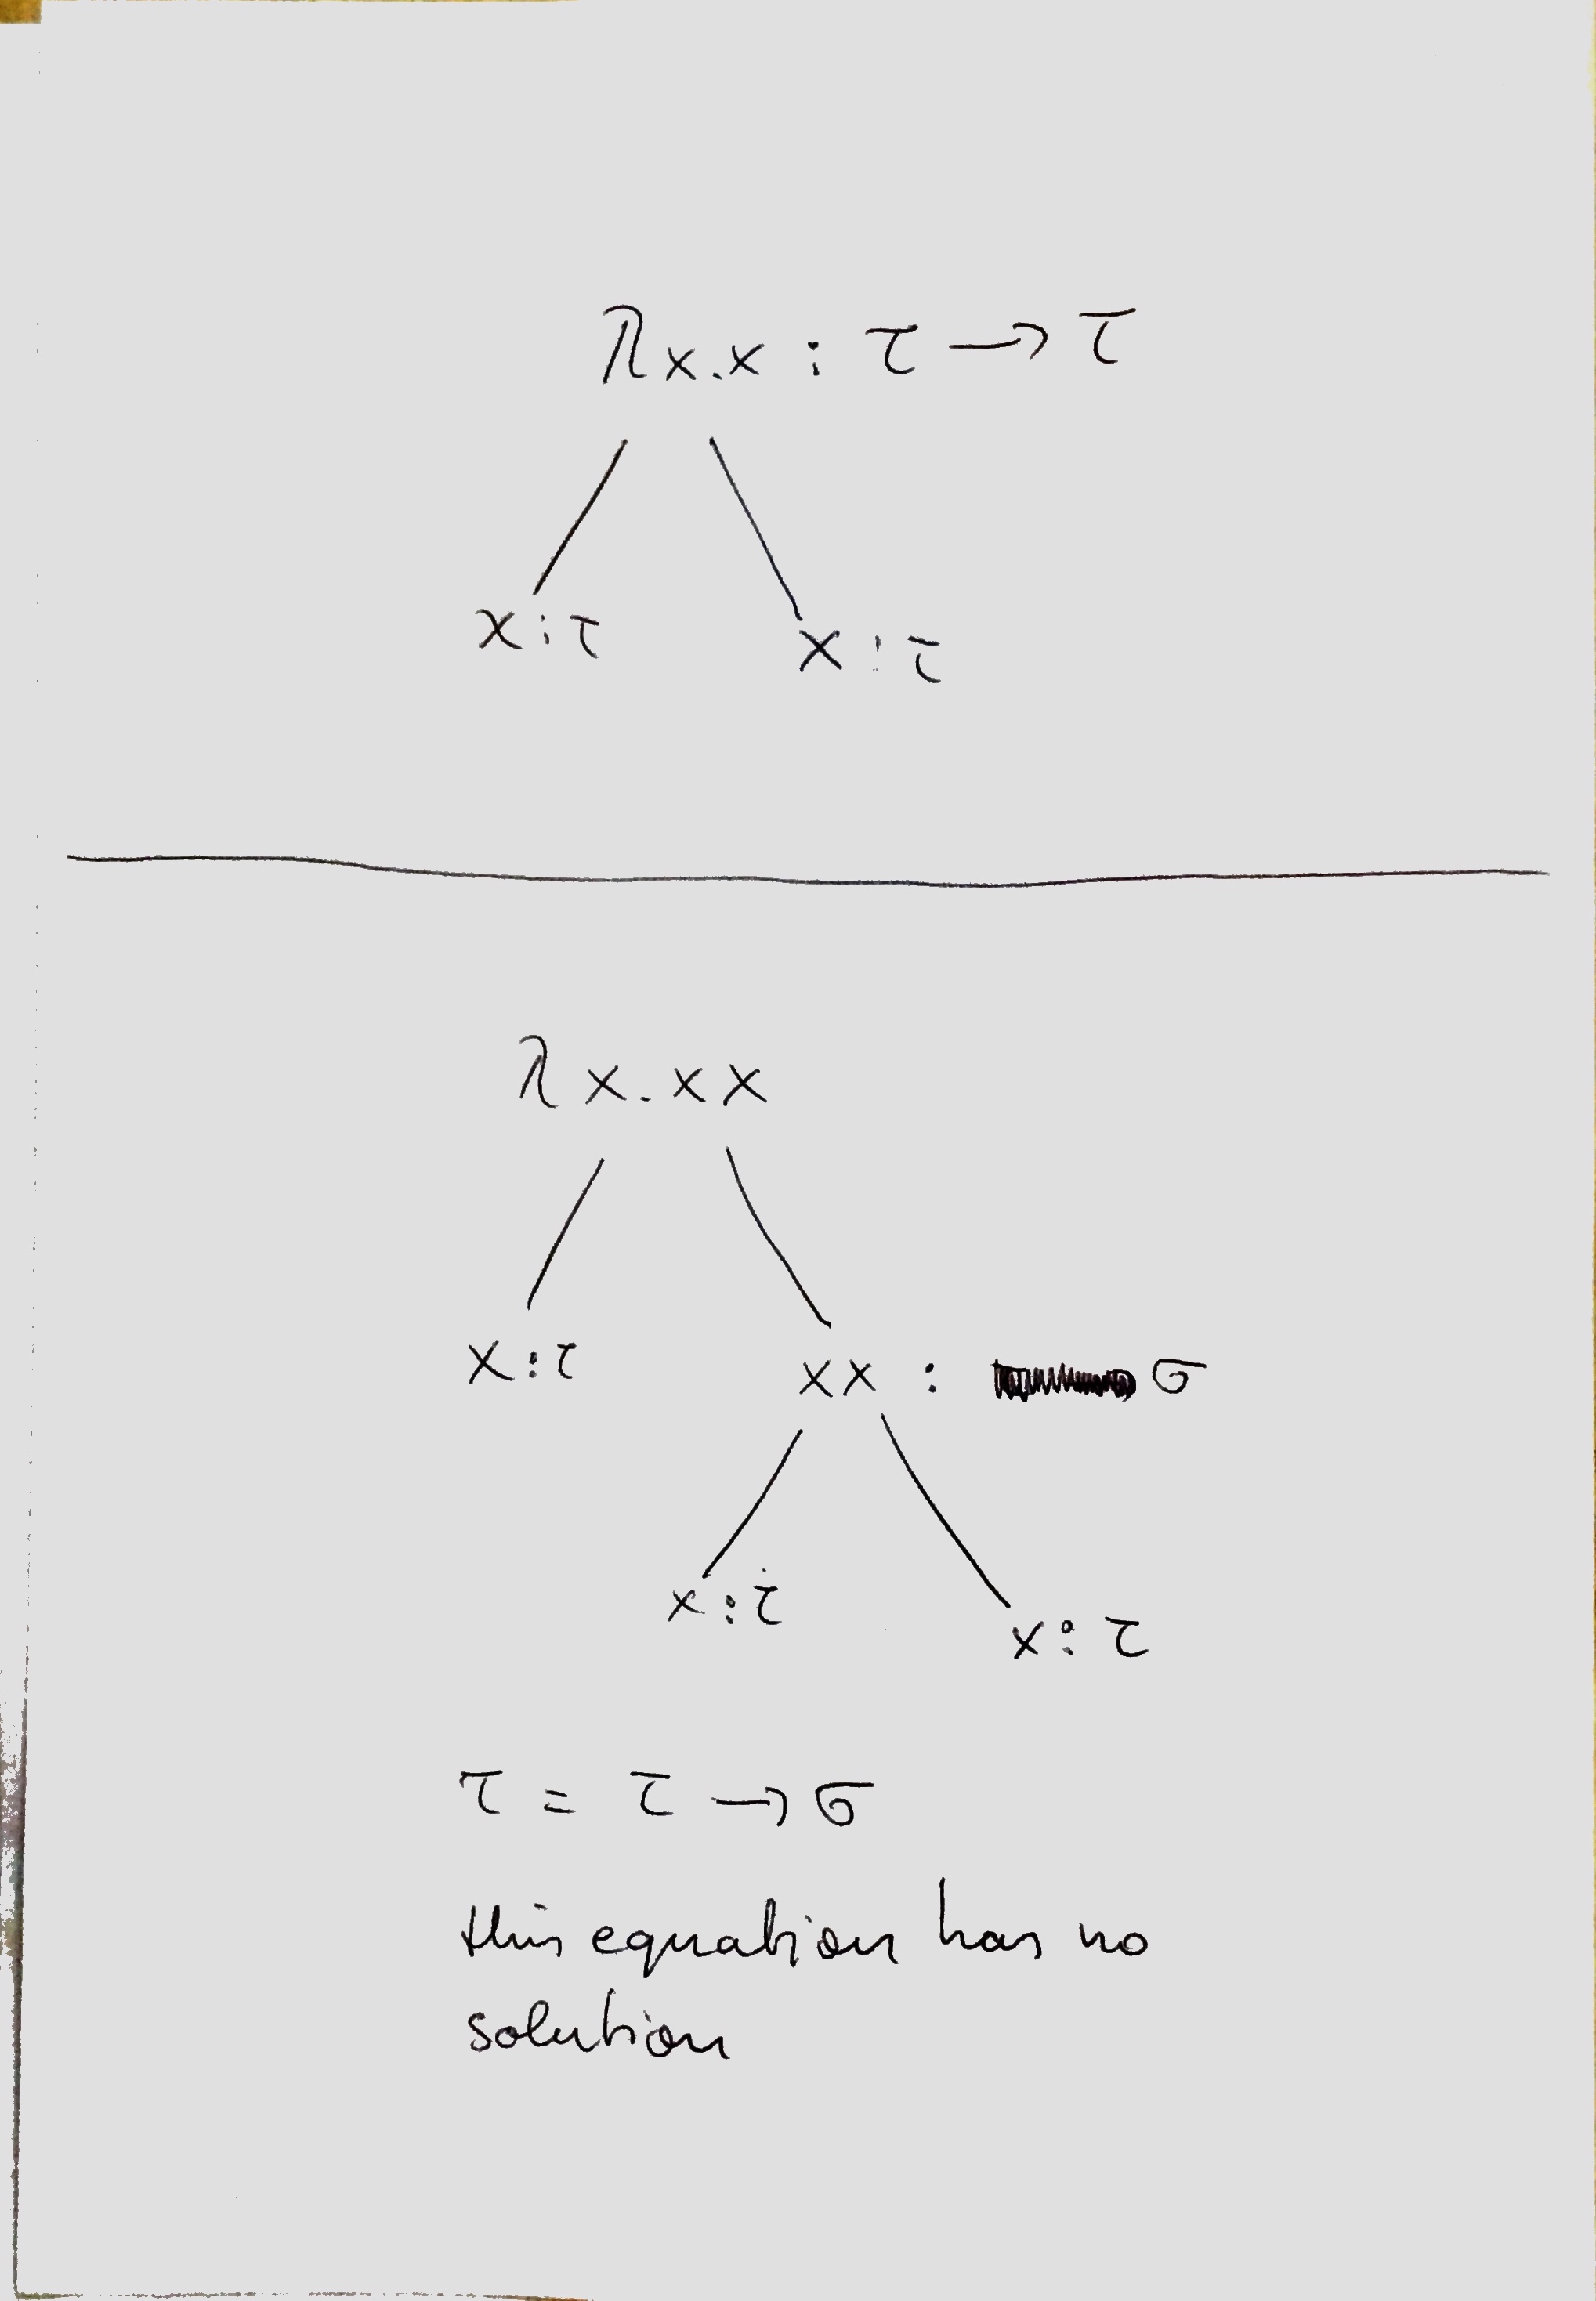 λx.x : τ → τ
x : τ x : τ
λx.xx
x : τ xx : σ
x : τ x : τ
τ = τ → σ
this equation has no
solution